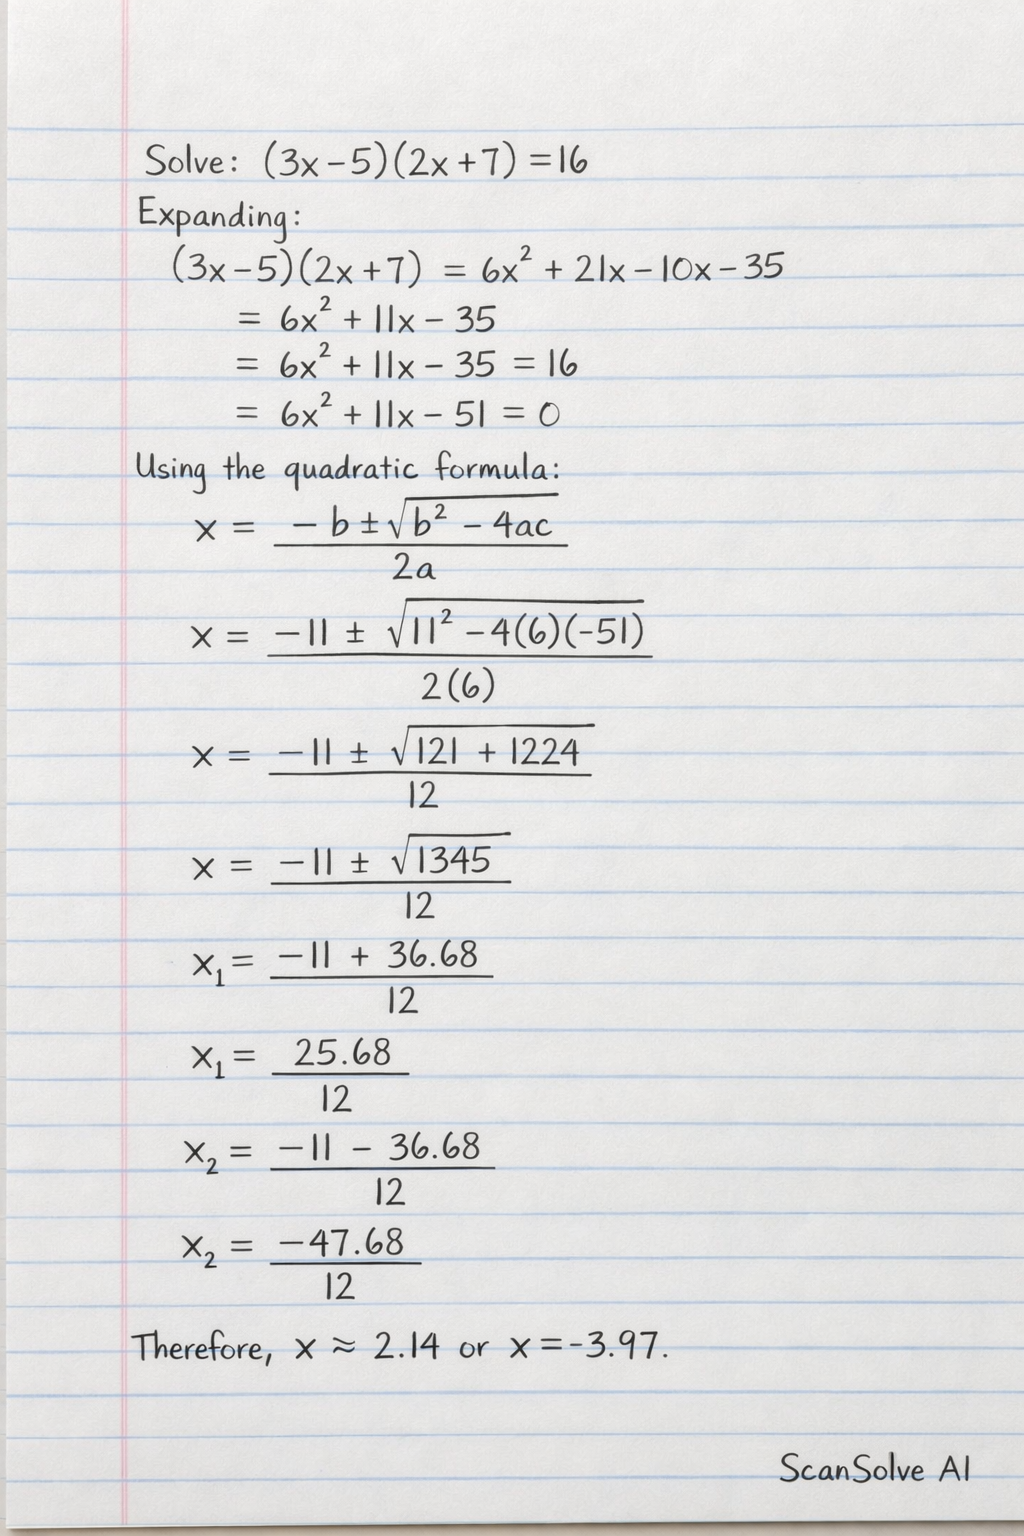 Solve: (3x-5)(2x+7) = 16
Expanding:
(3x-5)(2x+7) = 6x² + 21x - 10x - 35
= 6x² + 11x - 35
= 6x² + 11x - 35 = 16
= 6x² + 11x - 51 = 0
Using the quadratic formula:
x = -b ± √b² - 4ac
2a
x = -11 ± √11² - 4(6)(-51)
2(6)
x = -11 ± √121 + 1224
12
x = -11 ± √1345
12
x₁ = -11 + 36.68
12
x₁ = 25.68
12
x₂ = -11 - 36.68
12
x₂ = -47.68
12
Therefore, x ≈ 2.14 or x = -3.97.
ScanSolve AI